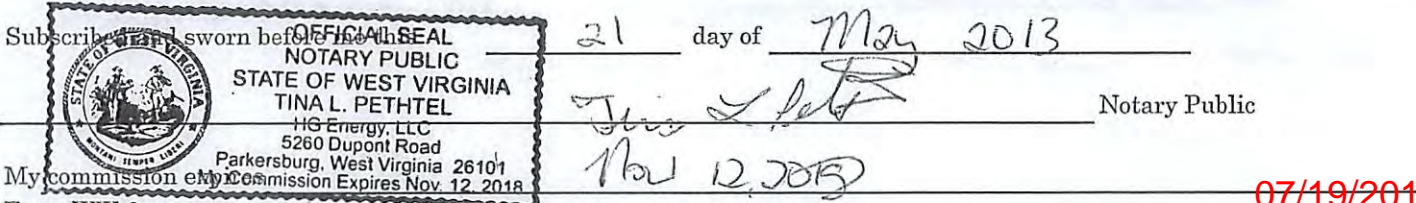 Subscribed and sworn before me this 21 day of May 2013
OFFICIAL SEAL
NOTARY PUBLIC
STATE OF WEST VIRGINIA
TINA L. PETHTEL
HG Energy, LLC
5260 Dupont Road
Parkersburg, West Virginia 26101
My Commission Expires Nov. 12, 2018
STATE OF WEST VIRGINIA
MONTANI SEMPER LIBERI
Notary Public
My commission expires Nov 12, 2018
07/19/201